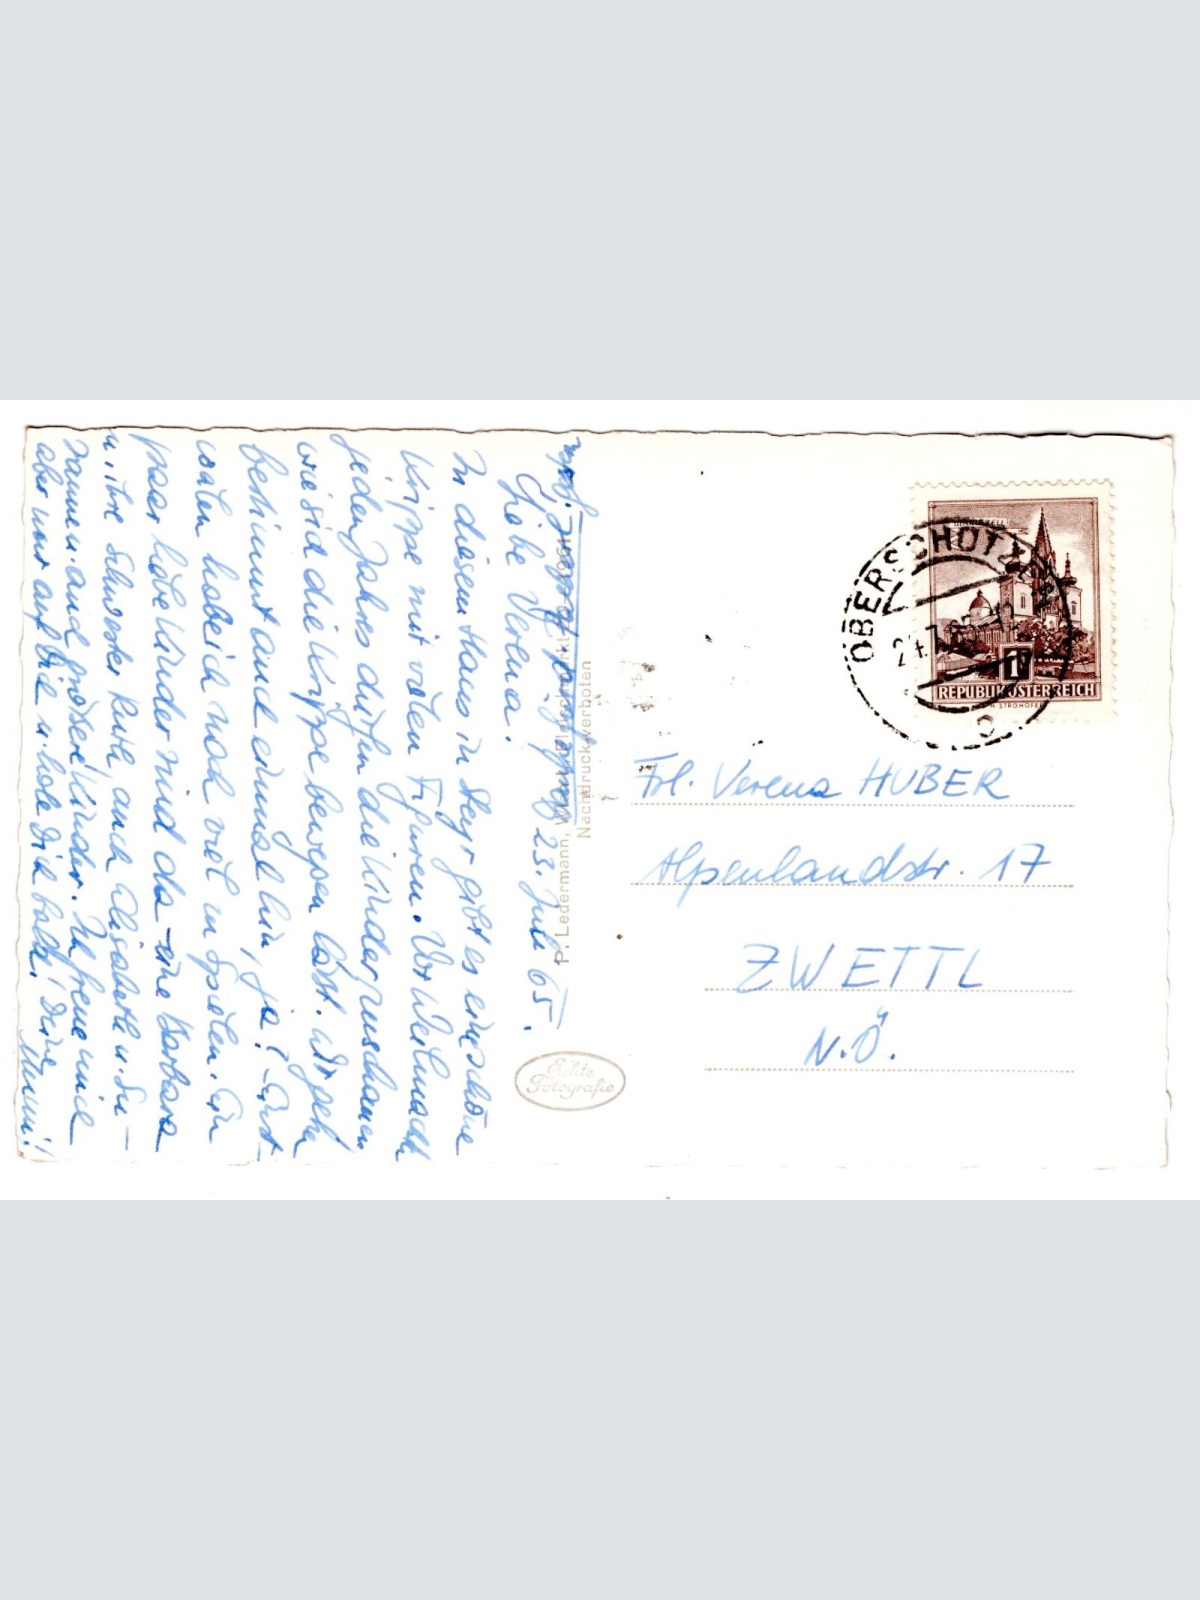 Liebe Verena! 23. Juli 65.
In diesem Haus in Steyr gibt es eine schöne
Krippe mit vielen Figuren. Vor Weihnacht
jeden Jahres dürfen die Kinder zuschauen
wie sich die Krippe bewegen läßt. Wir gehn
bestimmt auch einmal hin, ja? Gut
haben habe ich noch viel zu Spielen. Ein
paar liebe Kinder sind da - eine Barbara
u. ihre Schwester Ruth auch Elisabeth u. Su-
sanne u. auch größere Kinder. Ich freue mich
aber nur auf Dich u. hole Dich bald! Deine
Mami!
P. Ledermann, Wien 1961
Nachdruck verboten
Echte
Fotografie
MARIAZELL
1
REPUBLIK ÖSTERREICH
STROHOFER
OBERSCHÜTZEN
24.7.65-12
Frl. Verena HUBER
Alpenlandstr. 17
ZWETTL
N.Ö.